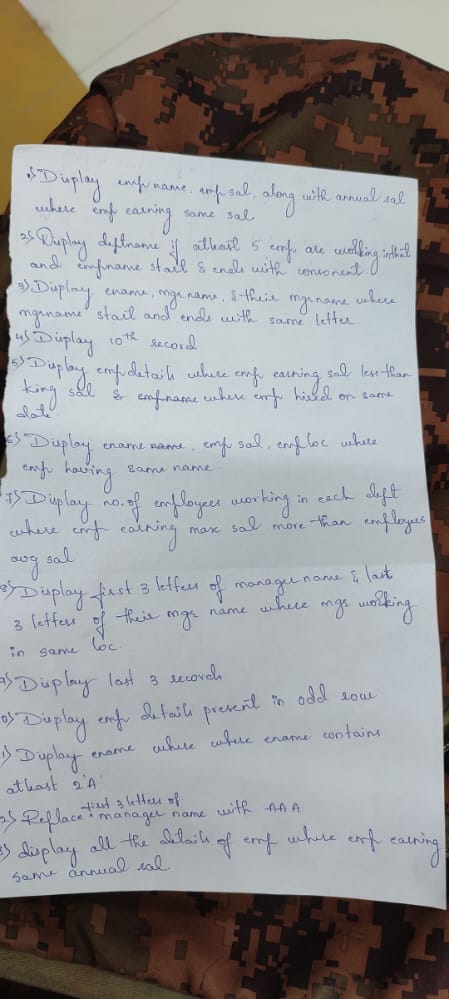 1) Display emp name, emp sal, along with annual sal
where emp earning same sal
2) Display deptname if atleast 5 emp are working in that
and empname start & ends with consonent
3) Display ename, mgr name, & their mgrname where
mgrname start and ends with same letter
4) Display 10th record
5) Display emp details where emp earning sal less than
king sal & empname where emp hired on same
date.
6) Display ename name, emp sal, emp loc where
emp having same name
7) Display no. of employees working in each dept
where emp earning max sal more than employees
avg sal
8) Display first 3 letters of manager name & last
3 letters of their mgr name where mgr working
in same loc.
9) Display last 3 records
0) Display emp details present in odd row
1) Display ename where where ename contains
atleast 2 'A'
2) Replace first 3 letters of manager name with AAA
3) display all the details of emp where emp earning
same annual sal